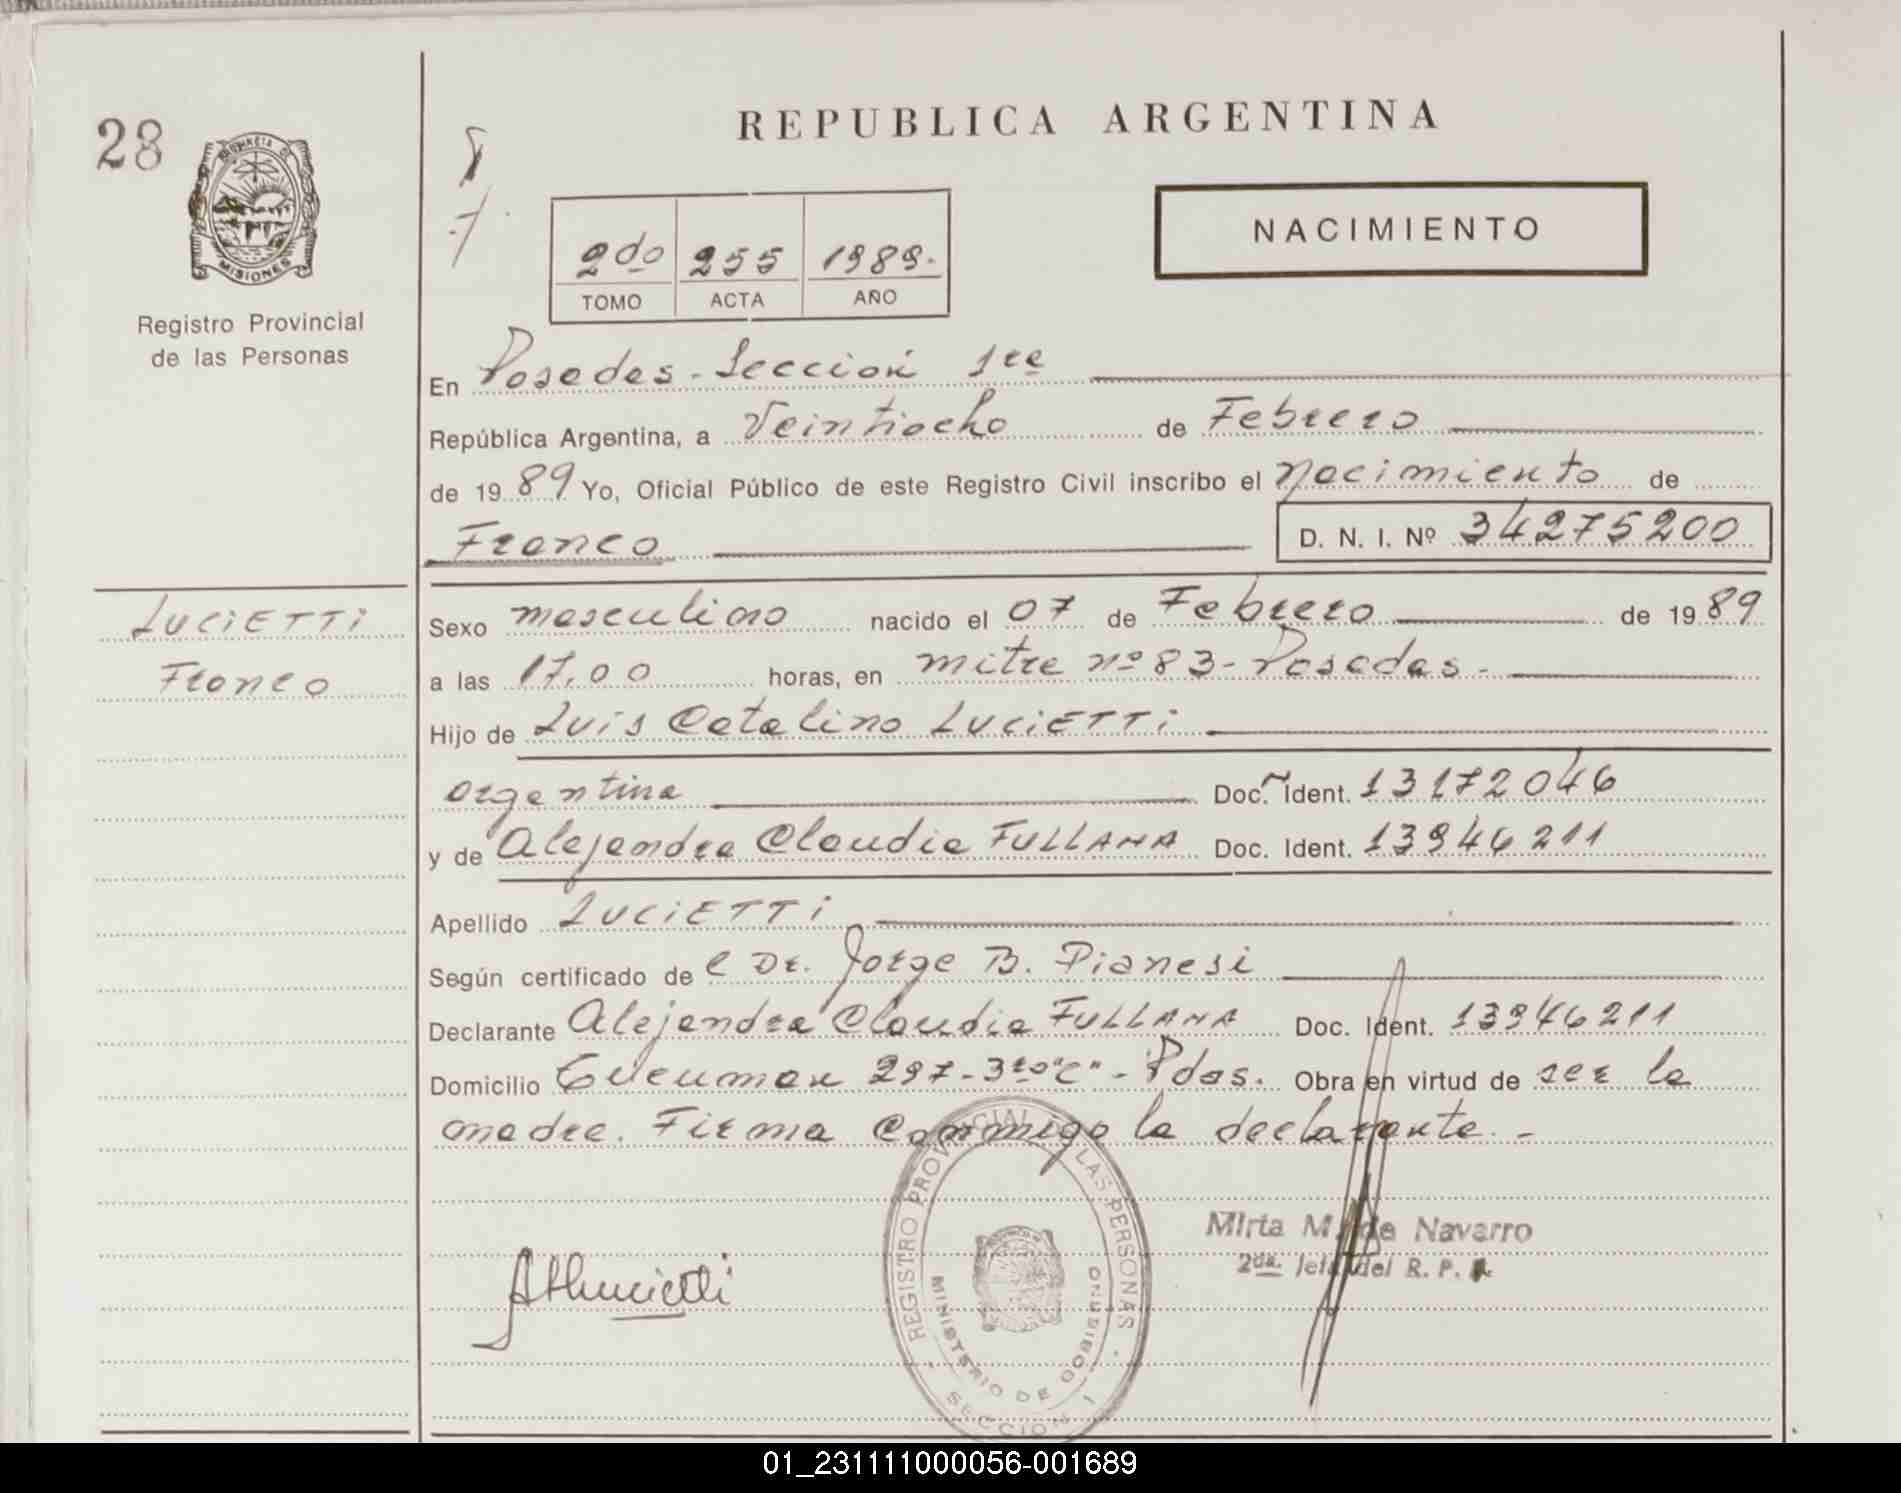 28
REPUBLICA ARGENTINA
PROVINCIA DE
MISIONES
Registro Provincial
de las Personas
2do 255 1989.
TOMO ACTA AÑO
NACIMIENTO
En Posadas - Sección 1ra
República Argentina, a Veintiocho de Febrero
de 1989 Yo, Oficial Público de este Registro Civil inscribo el nacimiento de
Franco
D. N. I. Nº 34275200
LUCiETTi
Franco
Sexo masculino nacido el 07 de Febrero de 1989
a las 17.00 horas, en mitre nº 83 - Posadas -
Hijo de Luis Catalino LUCiETTi
argentina Doc. Ident. 13172046
y de Alejandra Claudia FULLANA Doc. Ident. 13946211
Apellido LUCiETTi
Según certificado de l Dr. Jorge B. Pianesi
Declarante Alejandra Claudia FULLANA Doc. Ident. 13946211
Domicilio Tucuman 297 - 3ro "C" - Pdas. Obra en virtud de ser la
madre. Firma conmigo la declarante. -
REGISTRO PROVINCIAL LAS PERSONAS
MINISTERIO DE GOBIERNO
SECCION 1
Mirta M. de Navarro
2da. Jefa del R. P.
01_231111000056-001689